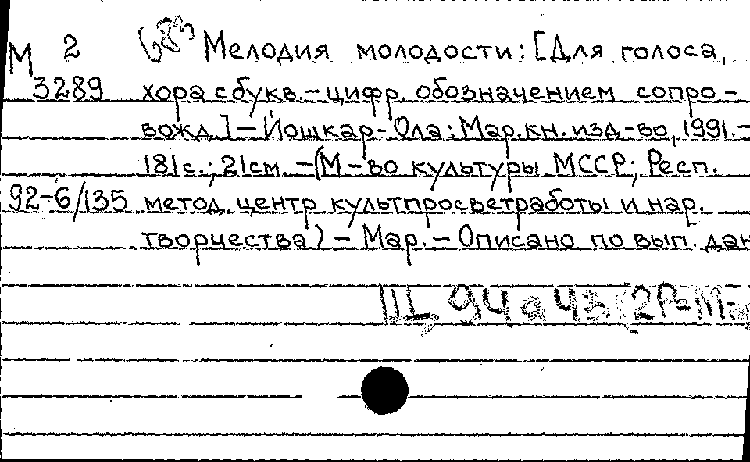 М 2 683 Мелодия молодости: [Для голоса,
3289 хора с букв.-цифр. обозначением сопро-
вожд.] - Йошкар-Ола: Мар. кн. изд-во, 1991.-
181с.; 21см. - (М-во культуры МССР; Респ.
92-6/135 метод. центр культпросветработы и нар.
творчества) - Мар. - Описано по вып. дан
Щ 94а43(2Р-М-